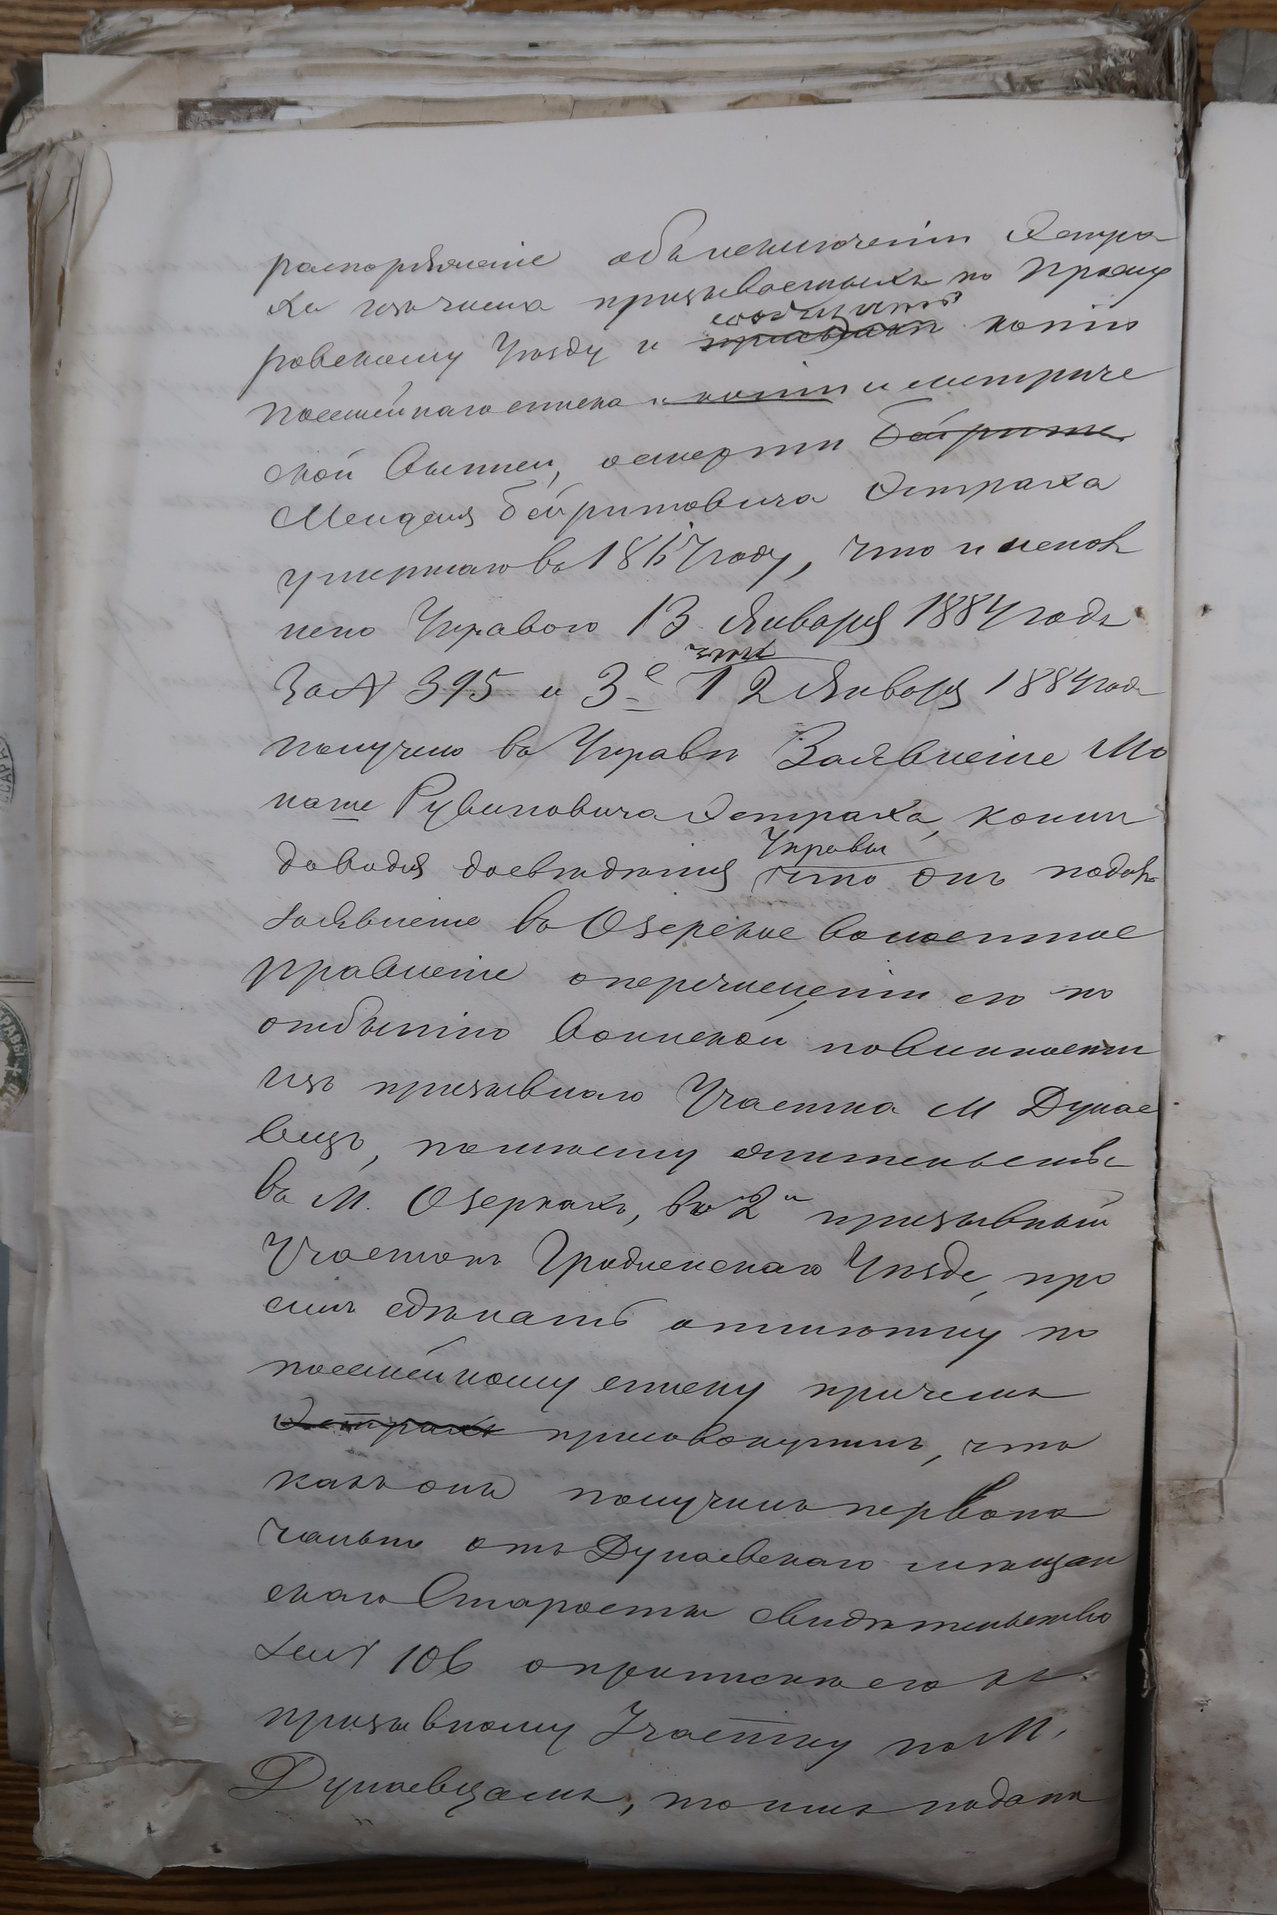 распоряженіе объ исключеніи Остра
ха изъ числа призываемыхъ по Проску
ровскому Уѣзду и сообщить копію
посемейнаго списка и копіи и метриче
ской выписи, о смерти Бейриша
Менделя Бейришовича Остраха
умершаго въ 1867 году, что и испол
нено Управою 13 Января 1884 года
За № 395 и 3е 12 Января 1884 года
получено въ Управѣ Заявленіе Мо
наше Рувиновича Остраха, коимъ
доводя до свѣдѣнія Управы что онъ подалъ
заявленіе въ Озерское волостное
правленіе о перечисленіи его по
отбытію воинской повинности
изъ призывнаго Участка М Дунае
вецъ, по жительству
въ М. Озеркахъ, во 2й призывный
Участокъ Гродненскаго Уѣзда, про
силъ сдѣлать отмѣтку по
посемейному списку причемъ
Острахъ присовокупилъ, что
какъ онъ получилъ первона
чально отъ Дунаевскаго мѣщан
скаго Старосты свидѣтельство
за № 106 о припискѣ его къ
призывному Участку по М.
Дунаевцамъ, то имъ подана